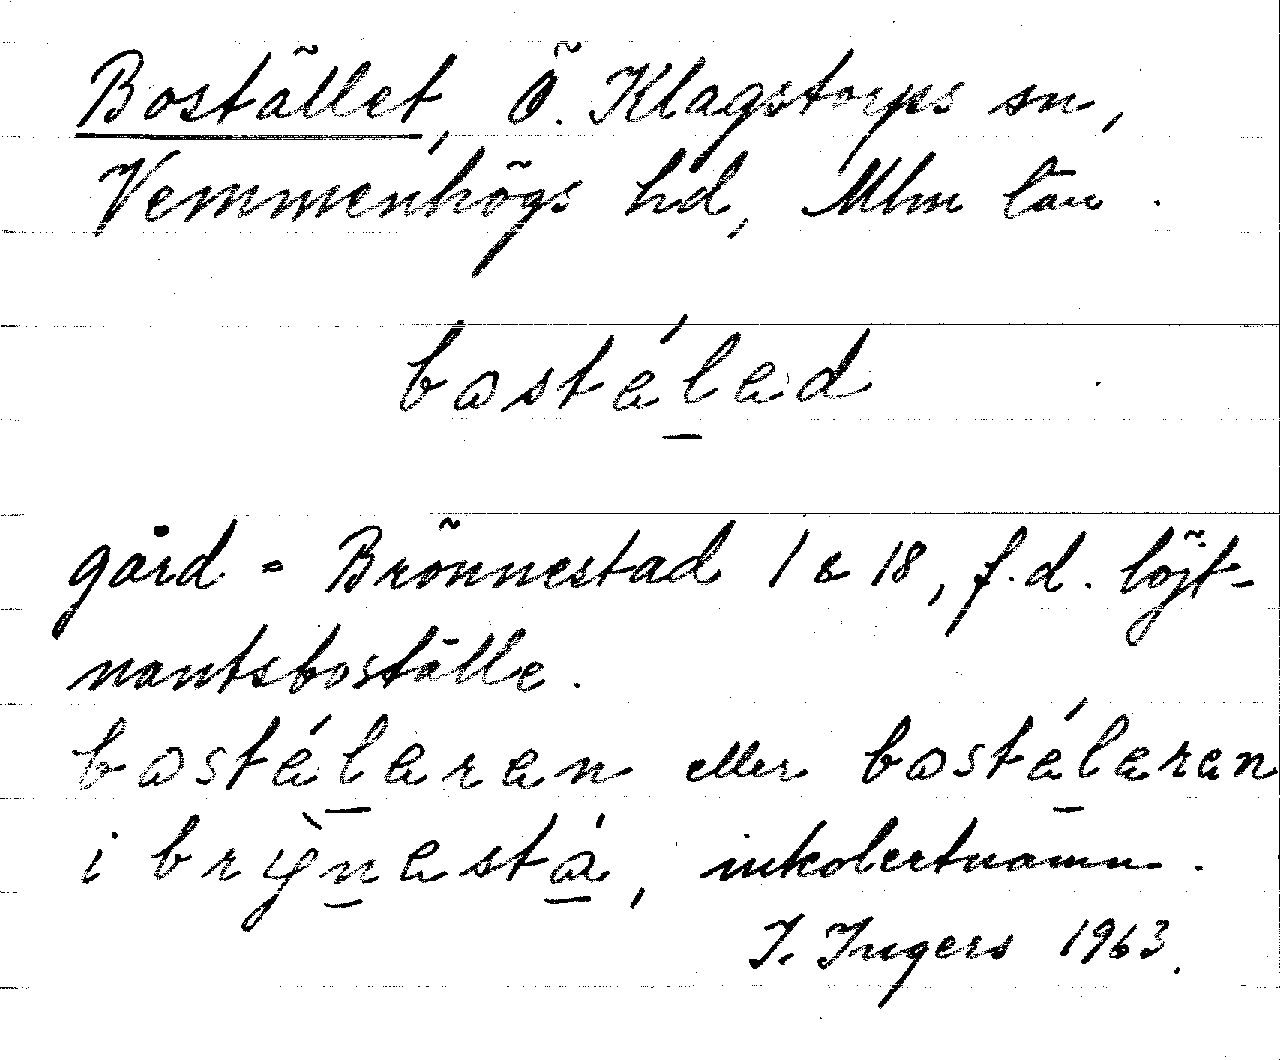 Bostället, Ö. Klagstorps sn,
Vemmenhögs hd, Mlm län.
bostélad
gård = Brönnestad 1 & 18, f.d. löjt-
nantsboställe.
bostélaren eller bostélaren
i brynestá, inkolentnamn.
I. Ingers 1963.